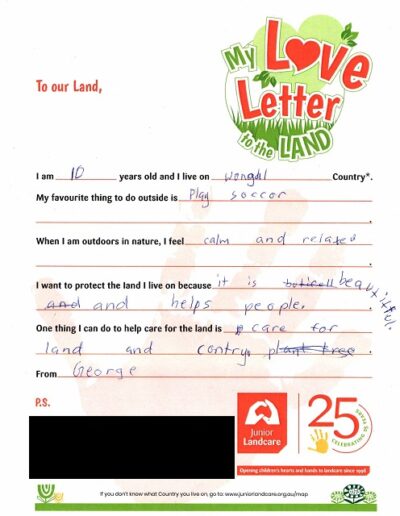 My Love
Letter
to the LAND
To our Land,
I am 10 years old and I live on Wongal Country*.
My favourite thing to do outside is Play soccor
.
When I am outdoors in nature, I feel calm and relaxed
.
I want to protect the land I live on because it is beautifful.
and and helps people.
One thing I can do to help care for the land is care for
land and contry. plant tree
From George
P.S.
Junior
Landcare
25 YEARS
CELEBRATING 25
Opening children's hearts and hands to landcare since 1998
If you don't know what Country you live on, go to: www.juniorlandcare.org.au/map